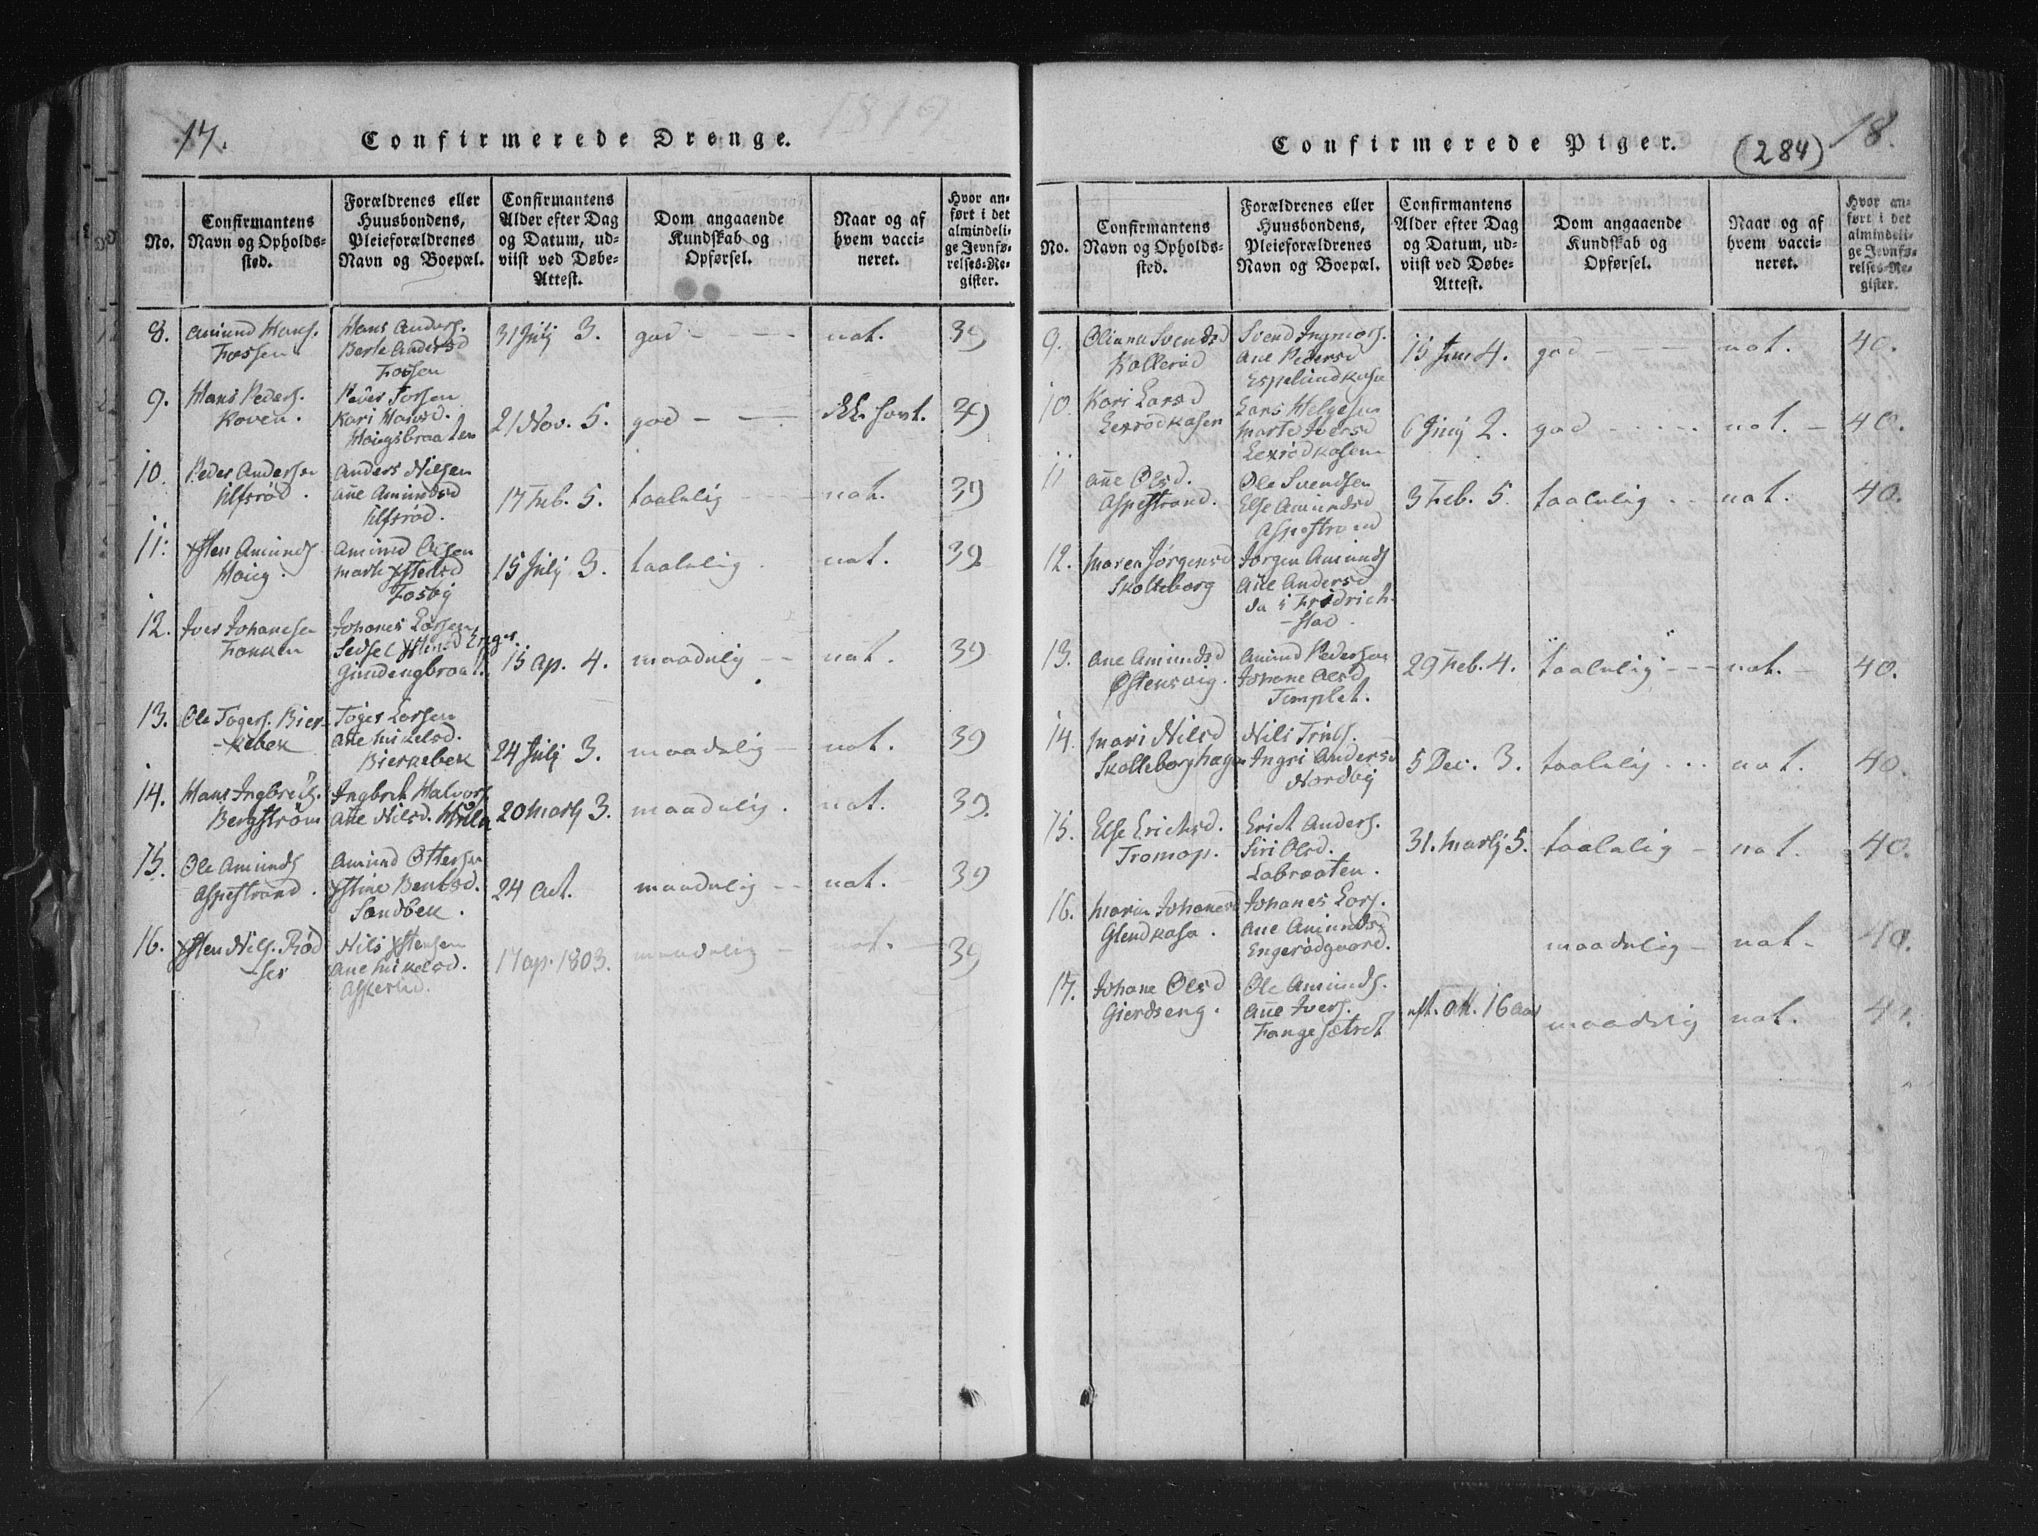 17.
Confirmerede Drenge.
No.
Confirmantens
Navn og Opholds-
sted.
Forældrenes eller
Huusbondens,
Pleieforældrenes
Navn og Boepæl.
Confirmantens
Alder efter Dag
og Datum, ud-
viist ved Døbe-
Attest.
Dom angaaende
Kundskab og
Opførsel.
Naar og af
hvem vacci-
neret.
Hvor an-
ført i det
almindeli-
ge Jevnfø-
relses-Re-
gister.
8.
Amund Hans.
Fossen
Hans Anders.
Berte Andersd
Fossen
31 Julj 3.
god
nat.
39
9.
Hans Peders.
Koven.
Peder Torsen
Kari Hansd.
Hoiigsbraaten
21 Nov. 5.
god
39
10.
Peder Andersen
Ulfsrød.
Anders Nilsen
Ane Amundsd
Ulfsrød.
17 Feb. 5.
taalelig
nat.
39
11.
Amunds
Amund Olsen
Fosbÿ
15 Julj 3.
taalelig
nat.
39
12.
Iver Johanesen
Johanes Larsen
15 ap. 4.
maadelig
nat.
39
13.
Ole Togers. Bier-
-kebek
Toger Larsen
Ane Mikelsd.
Bierkebek
24 Julj 3.
maadelig
nat.
39
14.
Hans Ingbretz.
Bergstrøm
Ingbret Halvors
Ane Nilsd.
20 Martj 3.
maadelig
nat.
39.
15.
Ole Amunds
Aspestrand.
Amund Ottersen
Bentsd.
Sandbek.
24 Oct.
maadelig
nat.
39
16.
Nils. Rød
Nils
Ane Mikelsd.
17 ap. 1803.
maadelig
nat.
39
Confirmerede Piger.
(284)
18.
No.
Confirmantens
Navn og Opholds-
sted.
Forældrenes eller
Huusbondens,
Pleieforældrenes
Navn og Boepæl.
Confirmantens
Alder efter Dag
og Datum, ud-
viist ved Døbe-
Attest.
Dom angaaende
Kundskab og
Opførsel.
Naar og af
hvem vacci-
neret.
Hvor an-
ført i det
almindeli-
ge Jevnfø-
relses-Re-
gister.
9.
Oliana Svendsd
Kollerød
Svend Ingmors.
Ane Pedersd
Espelundkasa
15 4.
god
nat.
40.
10.
Kari Larsd
Lexrødkasen
Lars Helgesen
Marte Iversd
Lexrødkasen
6 2.
god
nat.
40.
11
Ane Olsd.
Aspestrand.
Ole Svendsen
Else Amundsd
Aspestrand
3 Feb. 5.
taalelig
nat.
40.
12.
Maren Jørgensd
Skolleborg
Jørgen Amunds
Ane Andersd
da i Fridrich-
-stad.
13.
Ane Amundsd
Østensvig.
Amund Pedersen
Johane Olsd
Templet.
29 Feb. 4.
taalelig
nat.
40.
14.
Mari Nilsd
Skolleborghagen
Nils Truls.
Ingri Andersd
Nordby
5 Dec. 3.
taalelig
nat.
40.
15.
Else Erichsd.
Tromop.
Erich Anders.
Siri Olsd.
Labraaten.
31. Martj 5.
taalelig
nat.
40.
16.
Maria Johanesd
Glendkasa.
Johanes Lars.
Ane Amundsd
Engerødgaard.
maadelig
nat.
40.
17.
Johane Olsd
Gierdseng.
Ole Amunds.
Ane Ivers.
Fangesætret
16 aar
maadelig
nat.